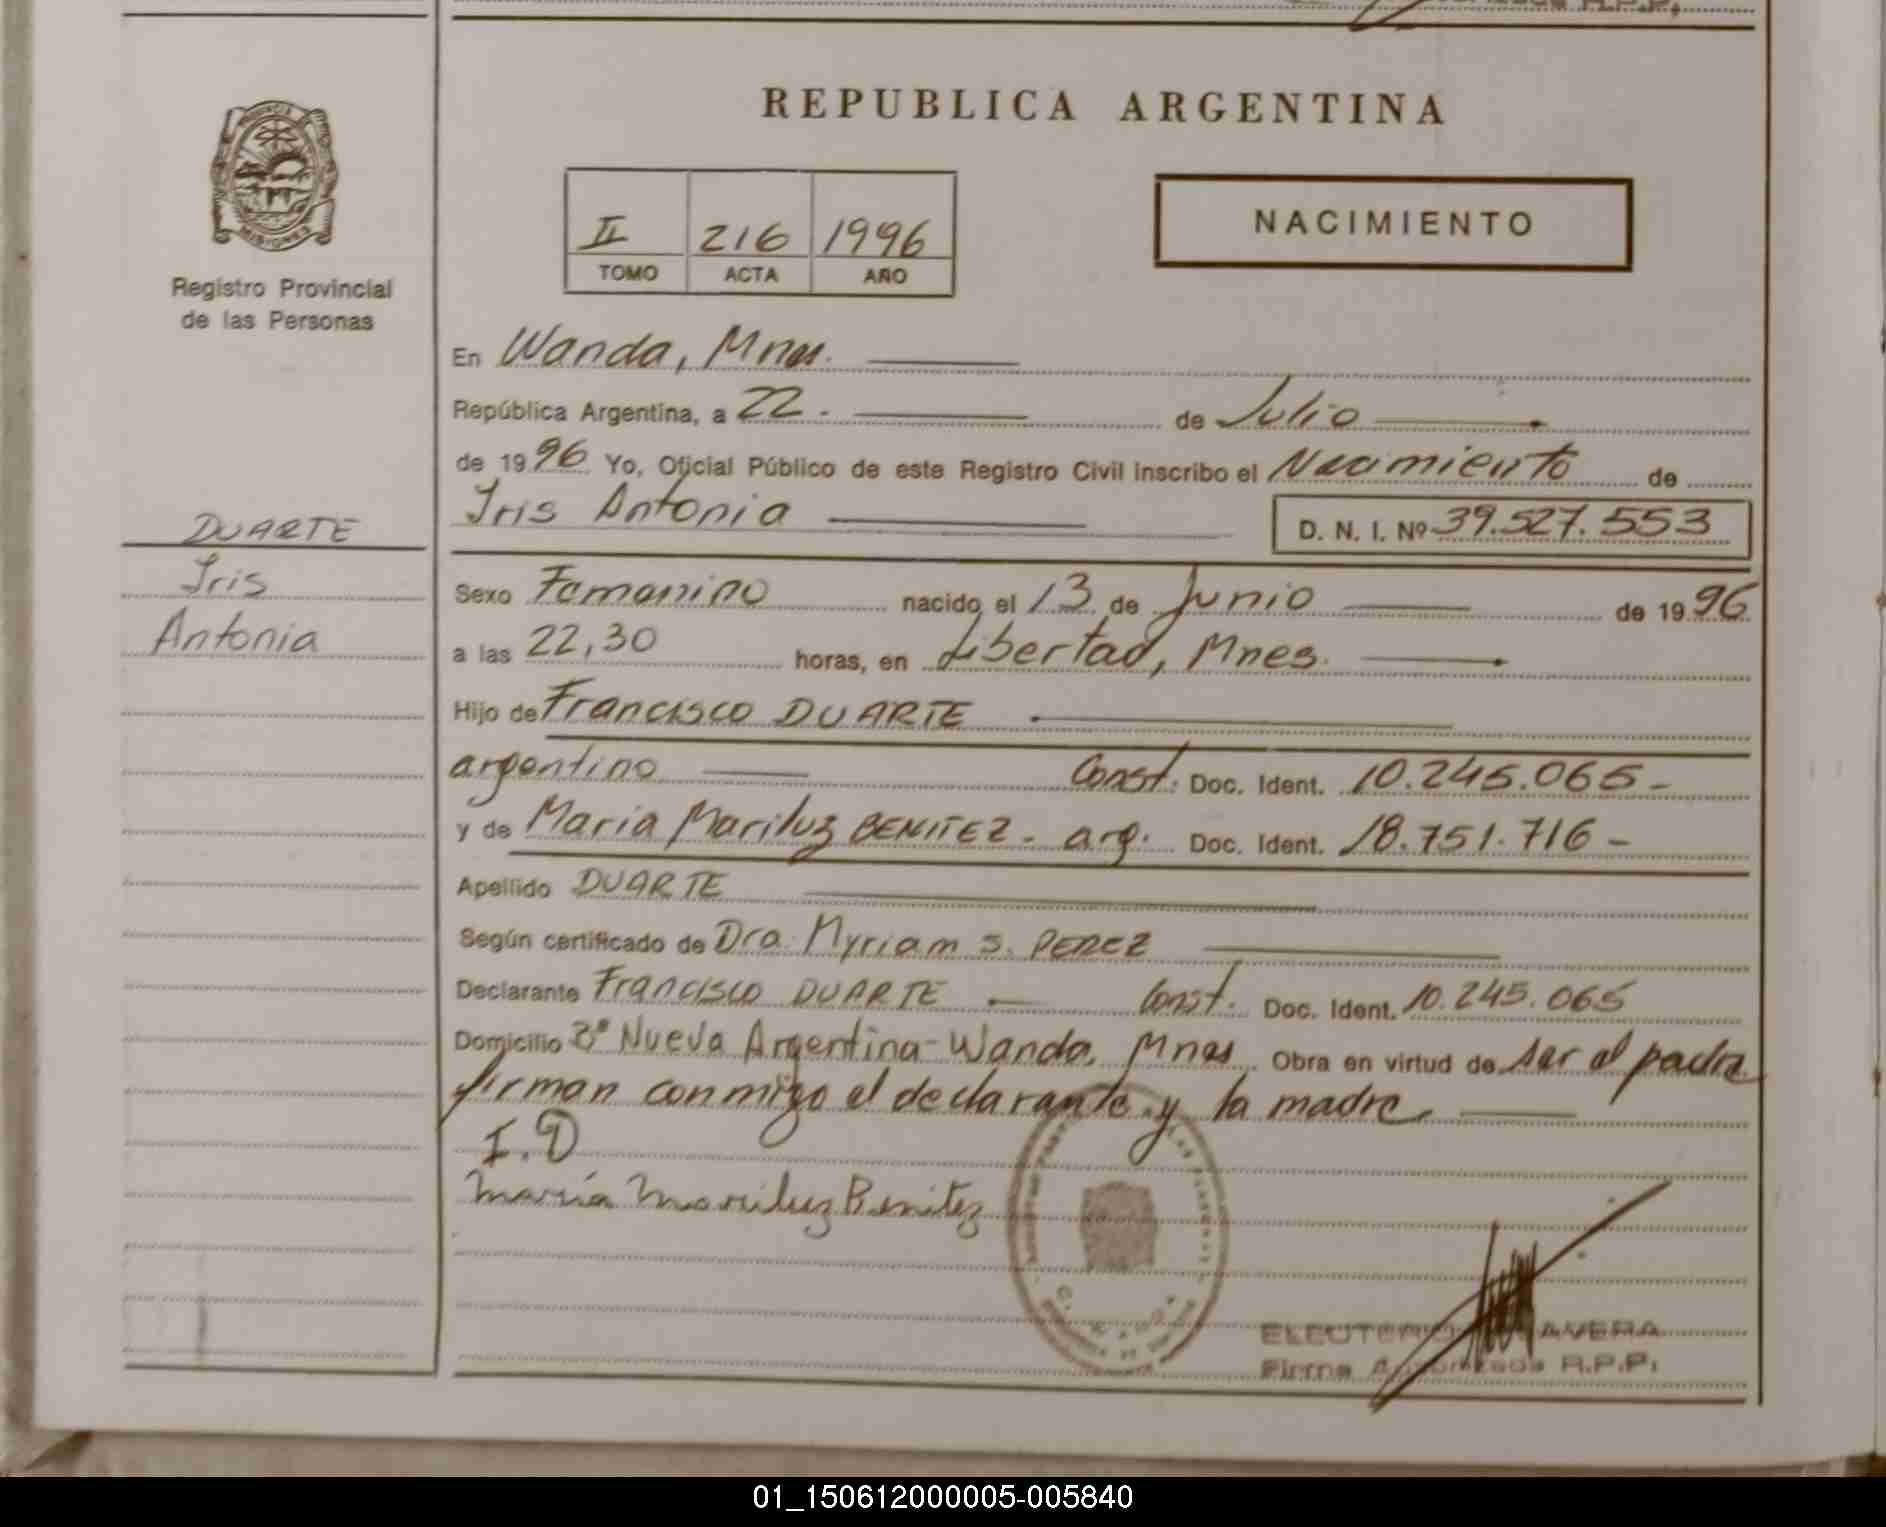 REPUBLICA ARGENTINA
II 216 1996
TOMO ACTA AÑO
NACIMIENTO
MISIONES
Registro Provincial
de las Personas
DUARTE
Iris
Antonia
En Wanda, Mnes.
República Argentina, a 22. de Julio
de 1996 Yo, Oficial Público de este Registro Civil inscribo el Nacimiento de
Iris Antonia D. N. I. Nº 39.527.553
Sexo Femenino nacido el 13 de Junio de 1996
a las 22,30 horas, en Libertad, Mnes.
Hijo de Francisco DUARTE
argentino Const. Doc. Ident. 10.245.065-
y de Maria Mariluz BENITEZ - arg. Doc. Ident. 18.751.716-
Apellido DUARTE
Según certificado de Dra. Myriam S. PEREZ
Declarante Francisco DUARTE - Const. Doc. Ident. 10.245.065
Domicilio Bº Nueva Argentina - Wanda, Mnes. Obra en virtud de ser el padre
firman conmigo el declarante y la madre.
I.D
María Mariluz Benitez
Firma Autorizada R.P.P.
01_150612000005-005840